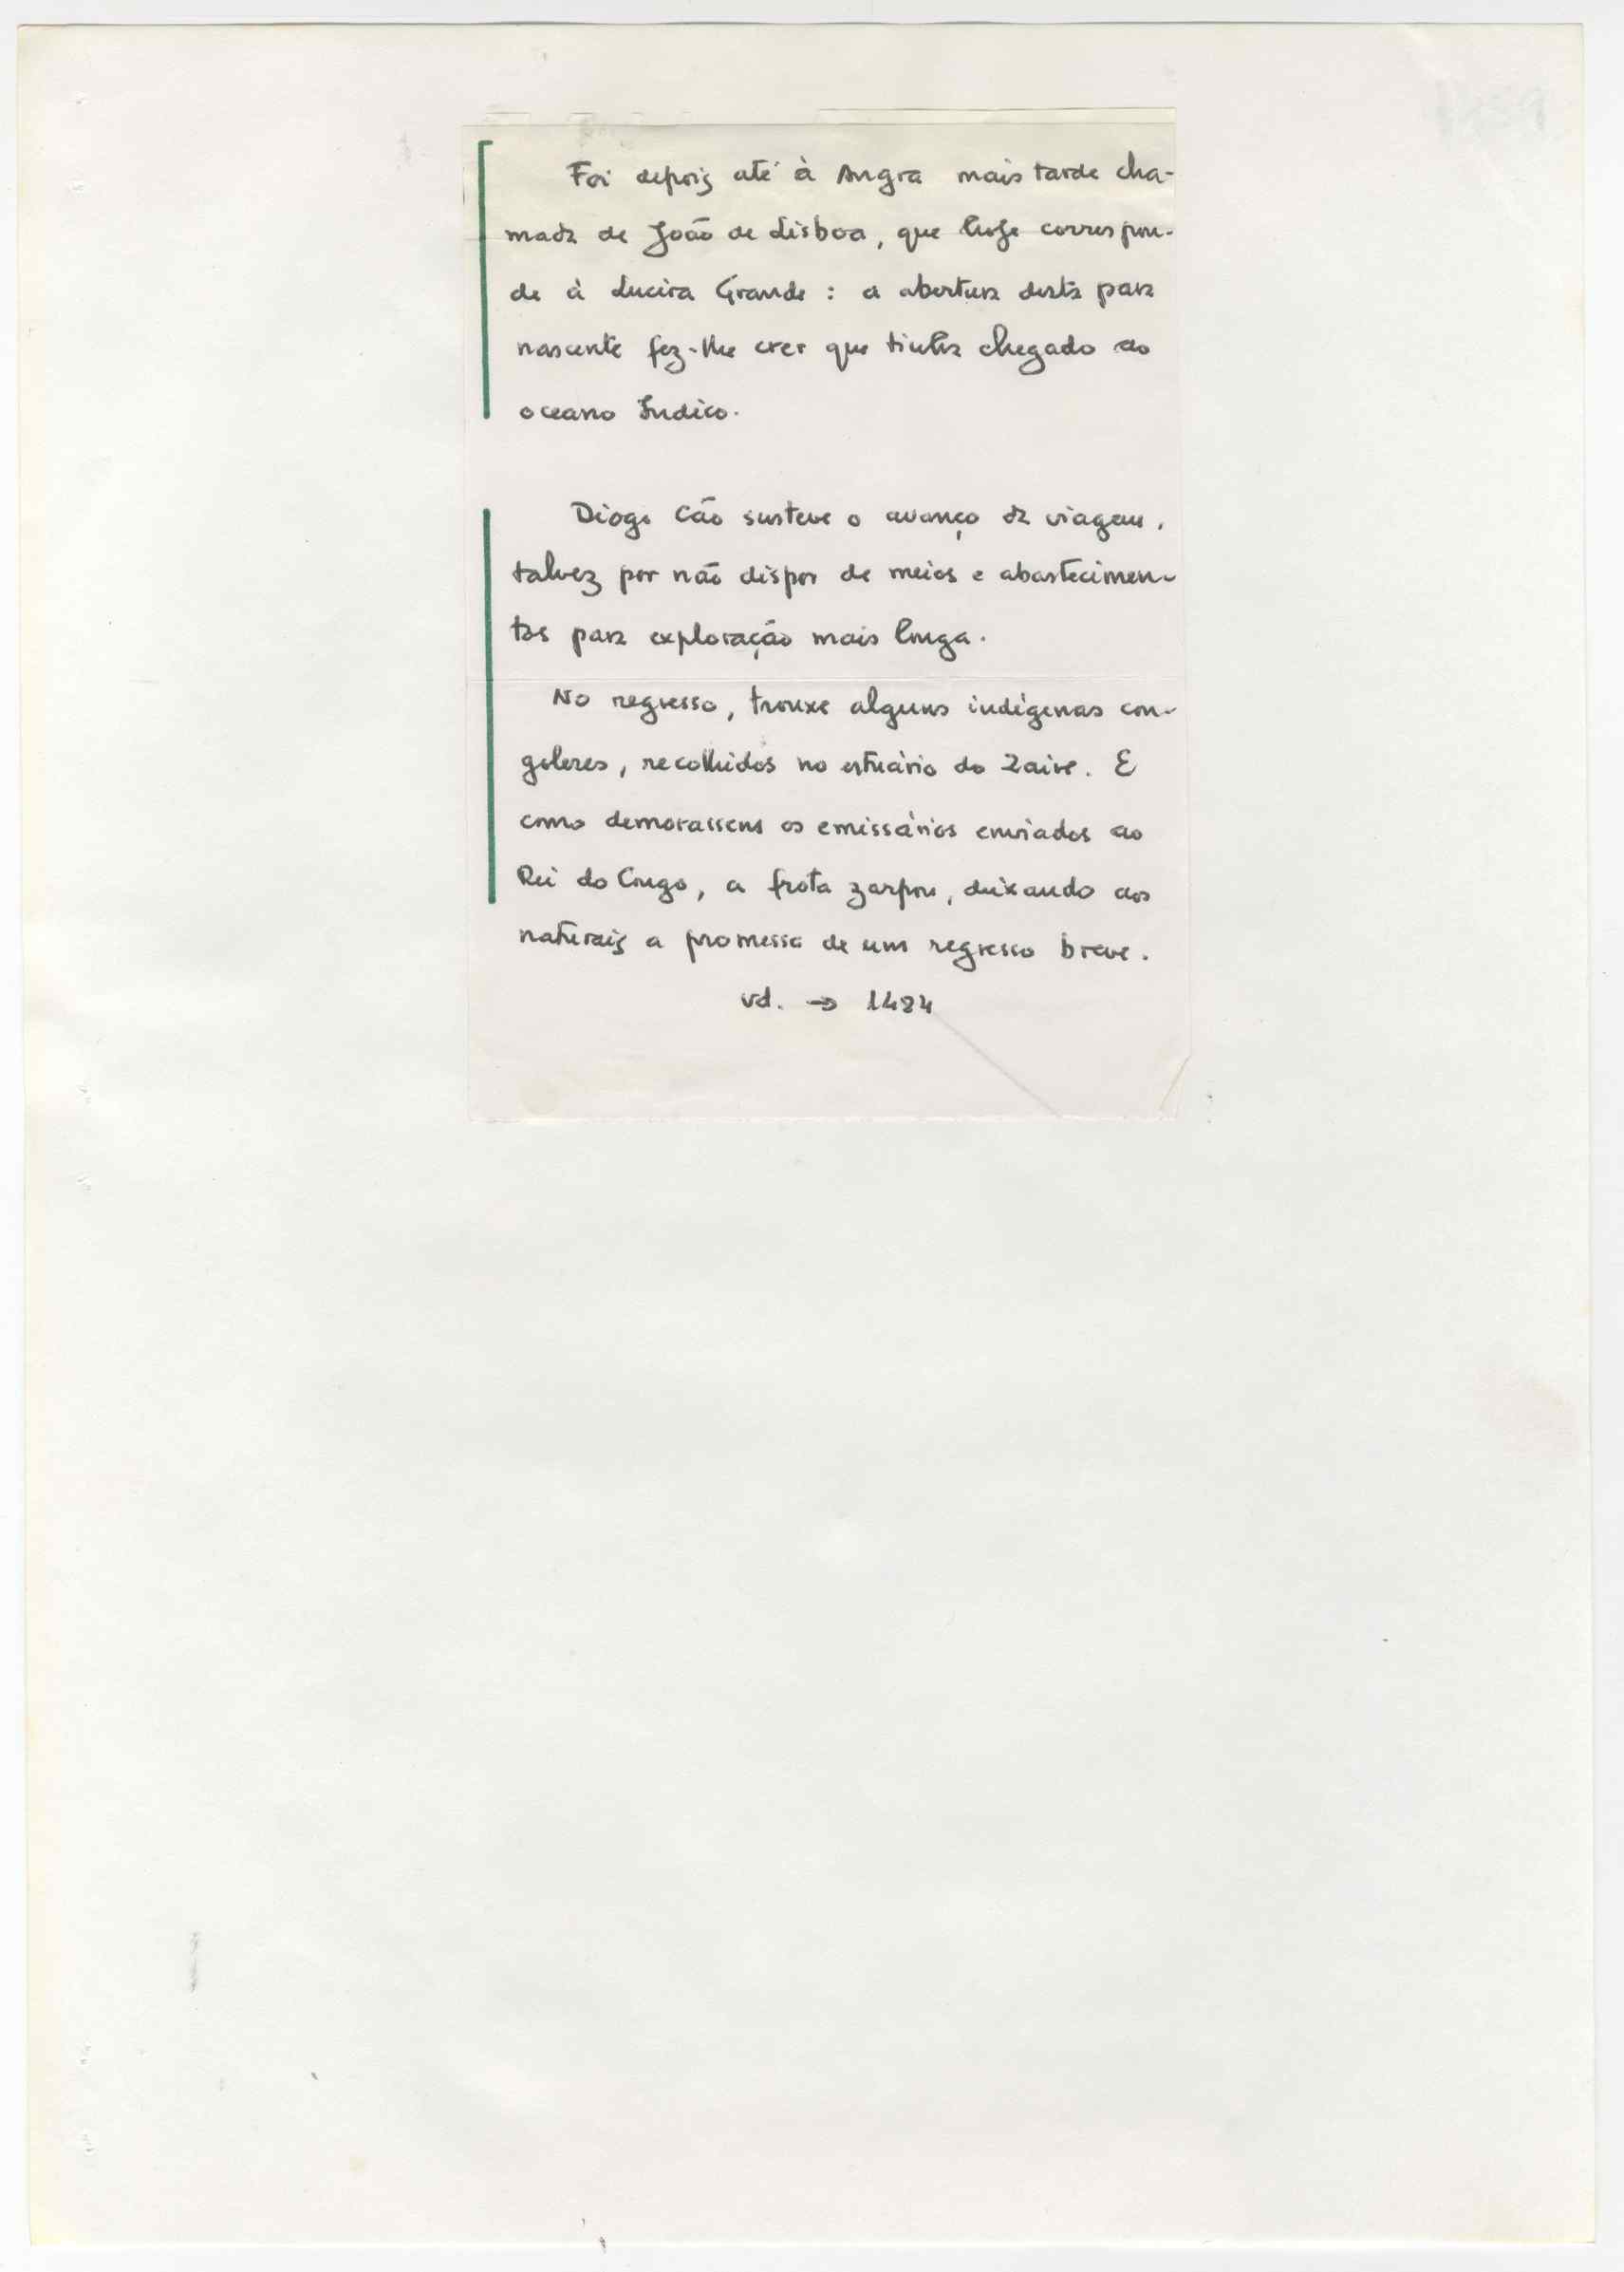 Foi depois até à Angra mais tarde cha-
mada de João de Lisboa, que hoje correspon-
de à Lucira Grande : a abertura desta para
nascente fez-lhe crer que tinha chegado ao
oceano Índico.
Diogo Cão susteve o avanço da viagem,
talvez por não dispor de meios e abastecimen-
tos para exploração mais longa.
No regresso, trouxe alguns indígenas con-
goleses, recolhidos no estuário do Zaire. E
como demorassem os emissários enviados ao
Rei do Congo, a frota zarpou, deixando aos
naturais a promessa de um regresso breve.
vd. → 1484